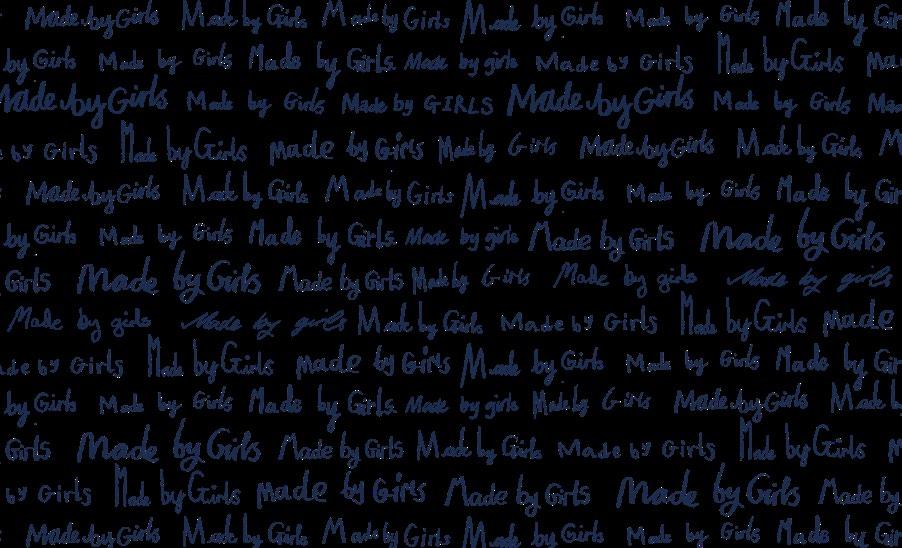 Made by Girls Made by Girls Made by Girls Made by Girls Made by Girls Made by Gir
by Girls Made by Girls Made by Girls. Made by girls Made by Girls Made by Girls Ma
Made by Girls Made by Girls Made by GIRLS Made by Girls Made by Girls Ma
by Girls Made by Girls made by Girls Made by Girls Made by Girls Made by Girls M
Made by Girls Made by Girls Made by Girls Made by Girls Made by Girls Made by Gir
by Girls Made by Girls Made by Girls. Made by girls Made by Girls Made by Girls
Girls Made by Girls Made by Girls Made by Girls Made by girls Made by girls
Made by girls Made by girls Made by Girls Made by Girls Made by Girls made
ade by Girls Made by Girls made by Girls Made by Girls Made by Girls Made by Gir
by Girls Made by Girls Made by Girls. Made by girls Made by Girls Made by Girls Made b
Girls Made by Girls Made by Girls Made by Girls Made by Girls Made by Girls
by Girls Made by Girls made by Girls Made by Girls Made by Girls Made by
Made by Girls Made by Girls Made by Girls Made by Girls Made by Girls Made by Gir